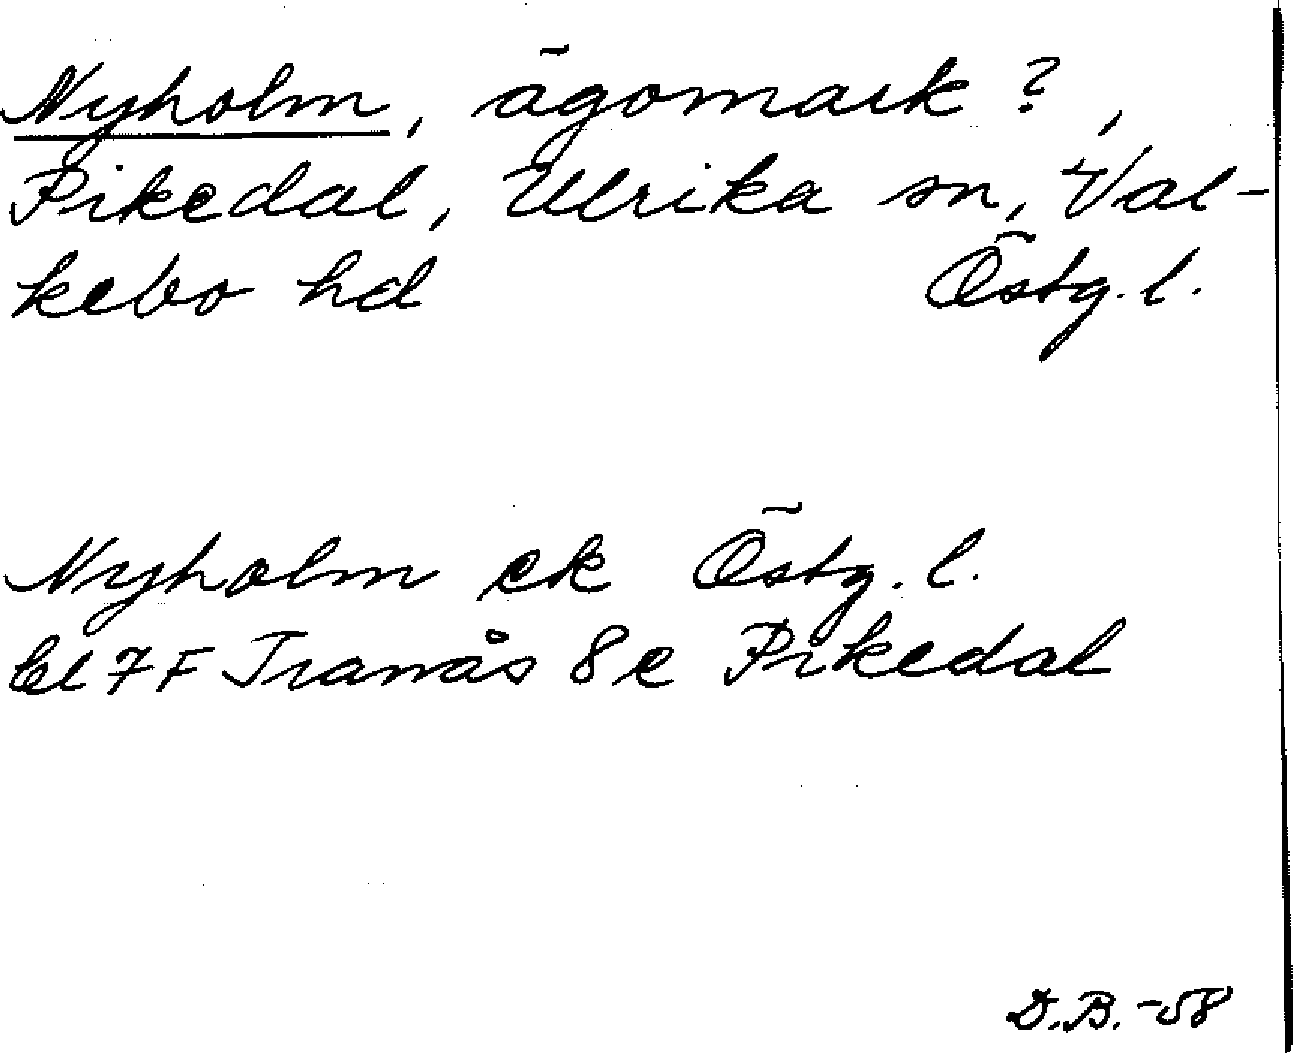 Nyholm, ägomark ?,
Pikedal, Ulrika sn, Val-
kebo hd Östg. l.
Nyholm ek Östg. l.
bl 7 F Tranås 8 e Pikedal
D.B. -58